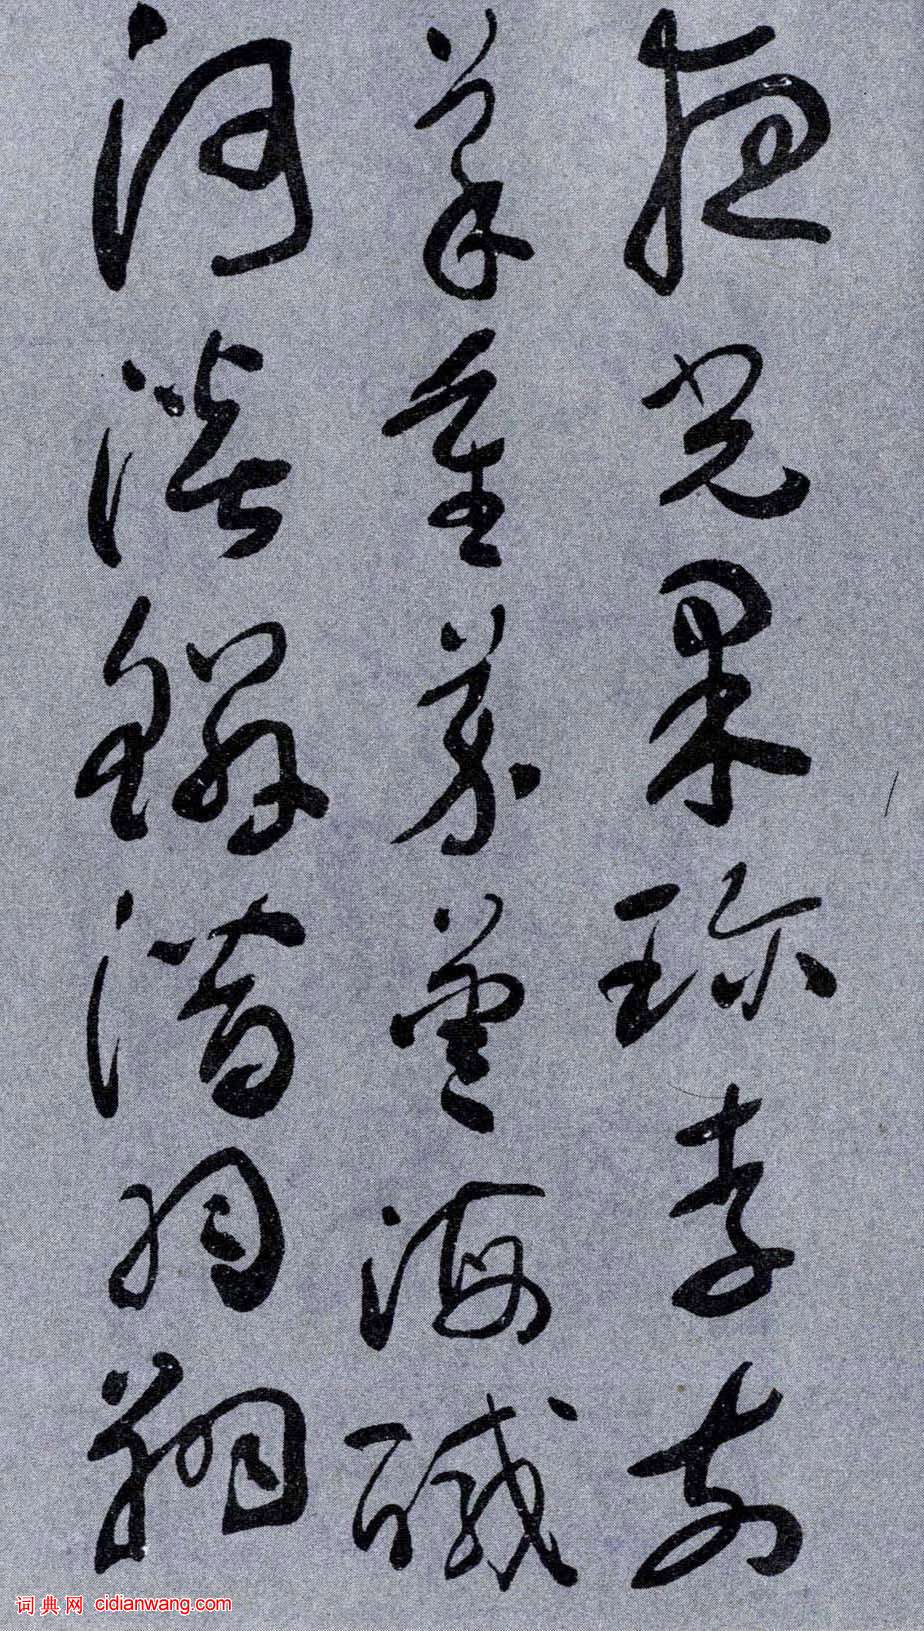 夜光果珍李柰
菜重芥薑海醎
河淡鱗潛羽翔
词典网 cidianwang.com